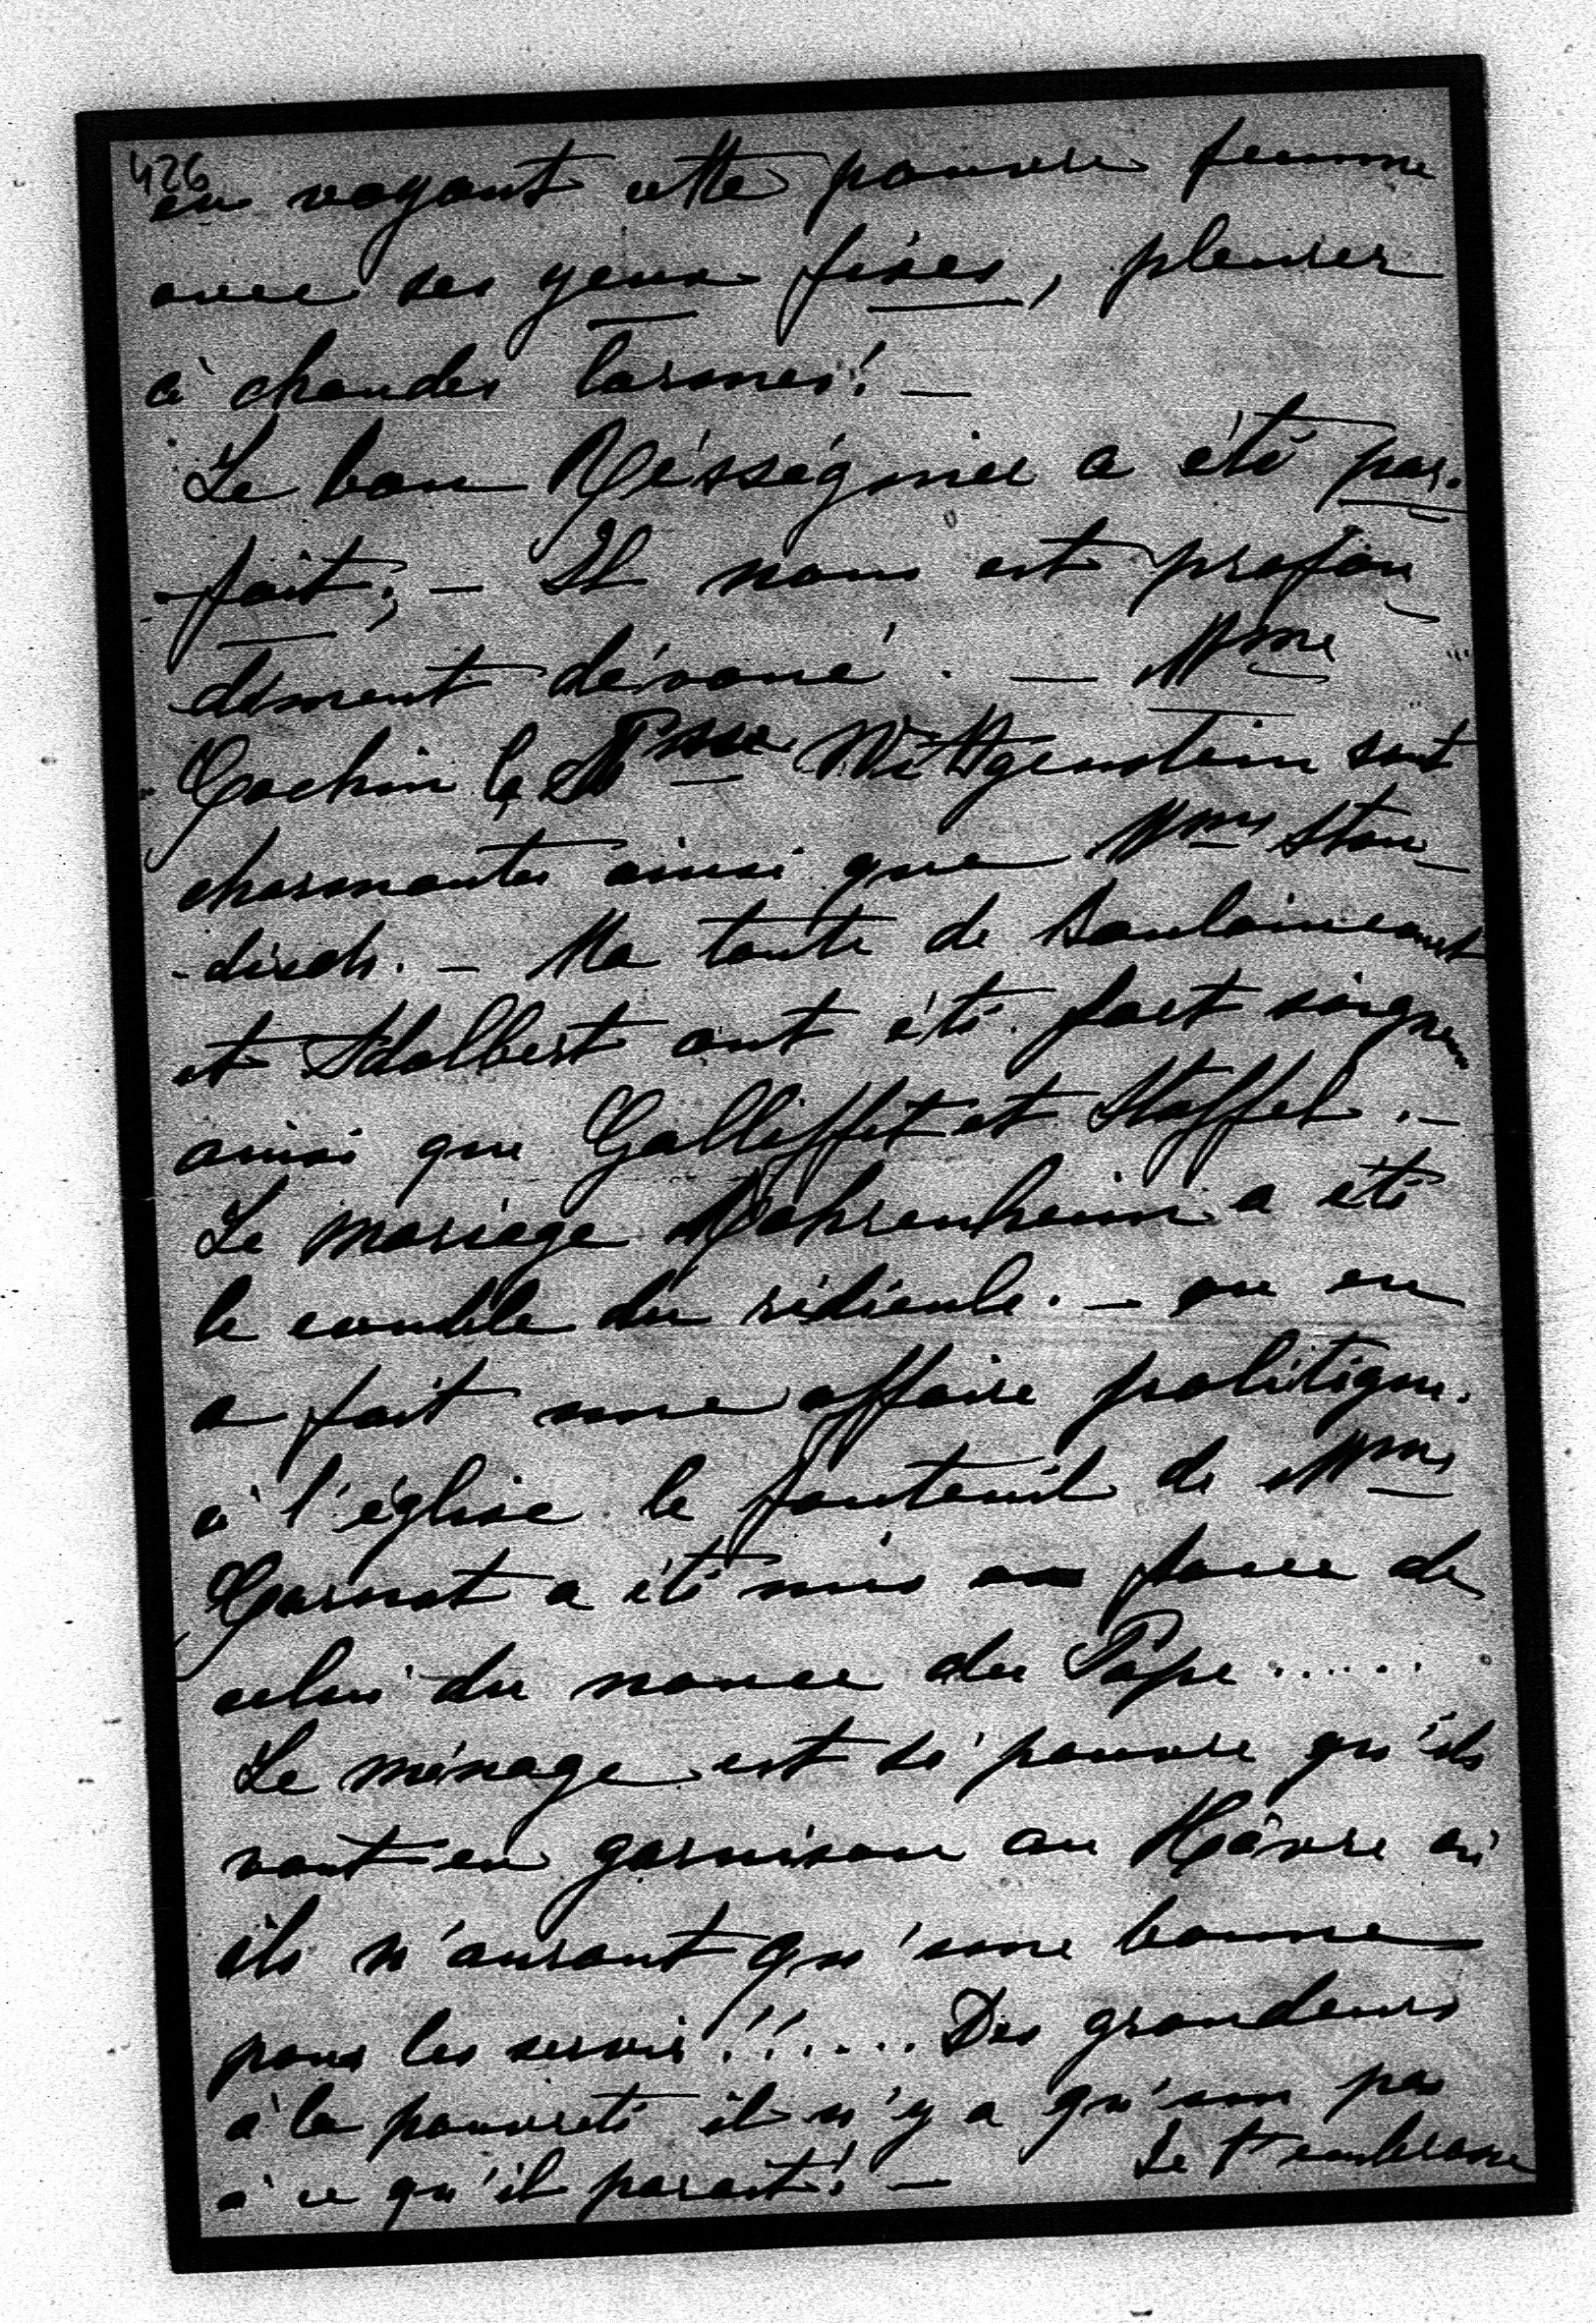 426
en voyant cette pauvre femme
avec ses yeux fixes, pleurer
à chaudes larmes! —
Le bon Rességuier a été par-
-fait; — Il nous est profon
dément dévoué. — Mme
Cochin la Psse Wittgenstein sont
charmantes ainsi que Mme Stan-
-disch. — Ma tante de
et Adalbert ont été fort soigneux
ainsi que Galliffet et Stoffel. —
Le mariage Mohrenheim a été
le comble du ridicule. — on en
a fait une affaire politique.
à l'église le fauteuil de Mme
Carnot a été mis en face de
celui du nonce du Pape......
Le ménage est si pauvre qu'ils
vont en garnison au Hâvre où
ils n'auront qu'une bonne
pour les servir!!..... Des grandeurs
à la pauvreté il n'y a qu'un pas
à ce qu'il parait! — Je t'embrasse